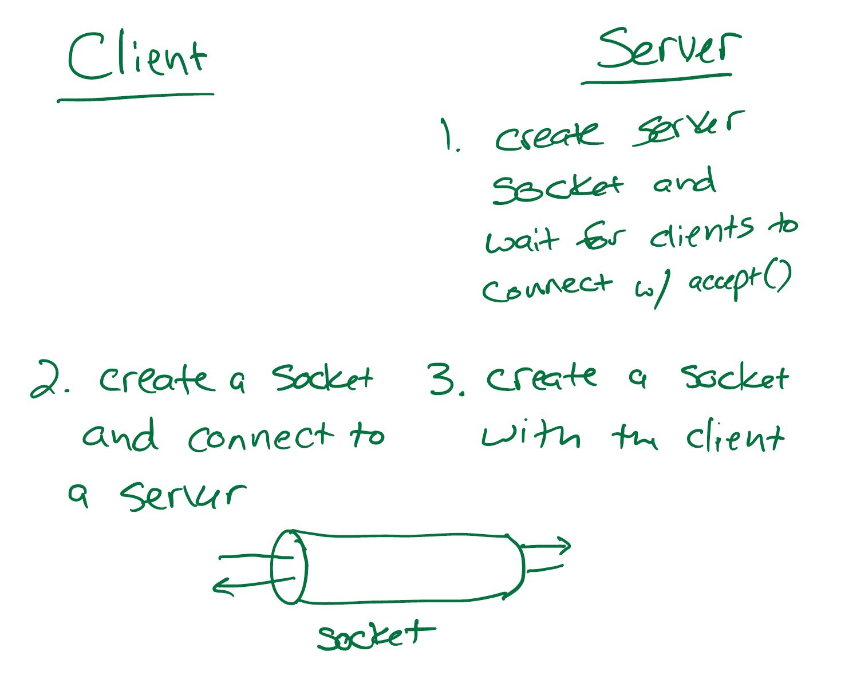 Client
Server
1. create server
socket and
wait for clients to
connect w/ accept()
2. create a socket
and connect to
a server
3. create a socket
with the client
socket